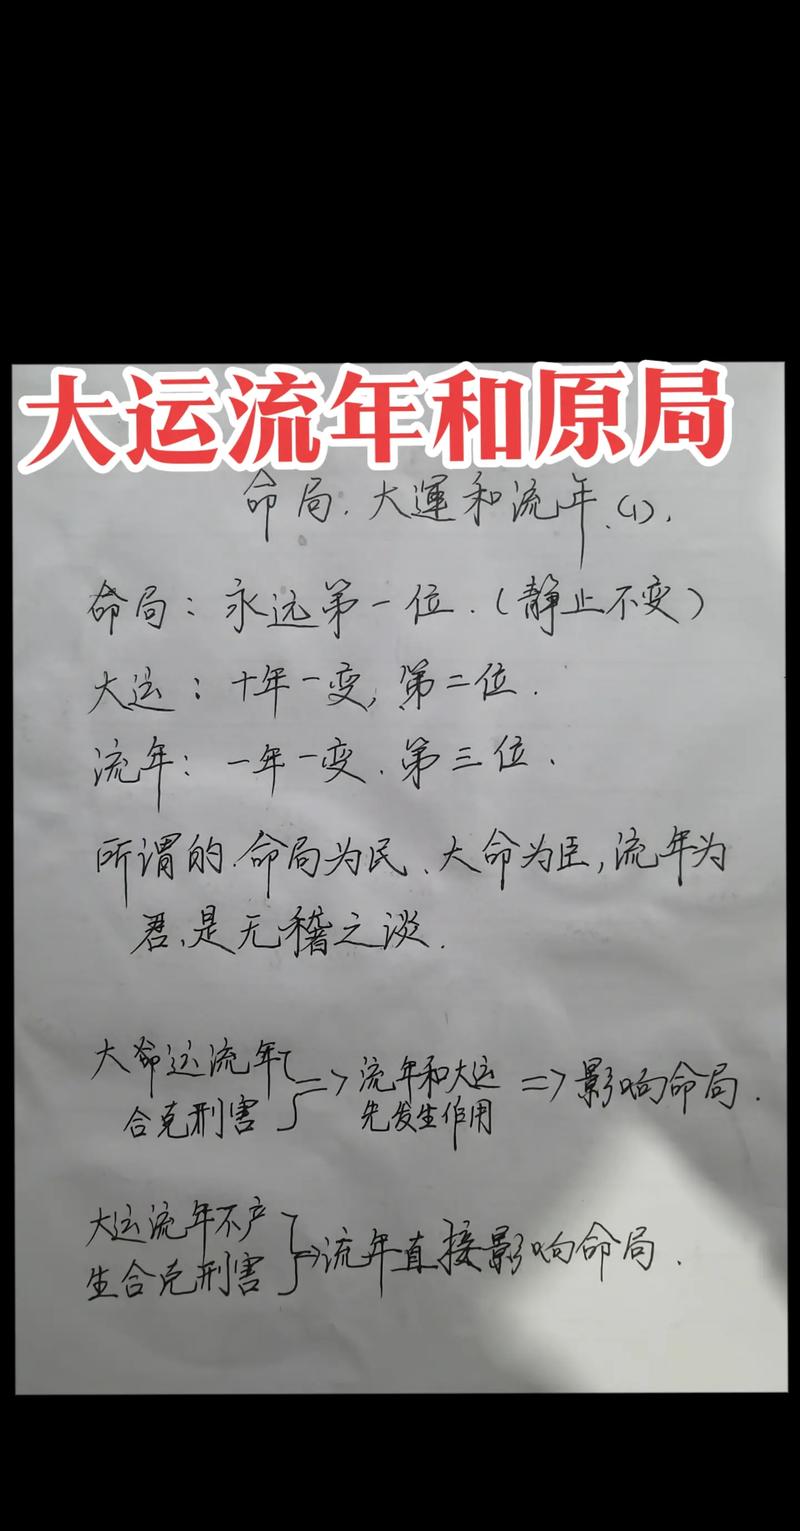 大运流年和原局
命局.大運和流年.(1).
命局：永远第一位.（静止不变）
大运：十年一变,第二位.
流年：一年一变.第三位.
所谓的.命局为民、大命为臣,流年为
君,是无稽之谈.
大命运流年
合克刑害
=> 流年和大运
先发生作用
=> 影响命局.
大运流年不产
生合克刑害
=>流年直接影响命局.